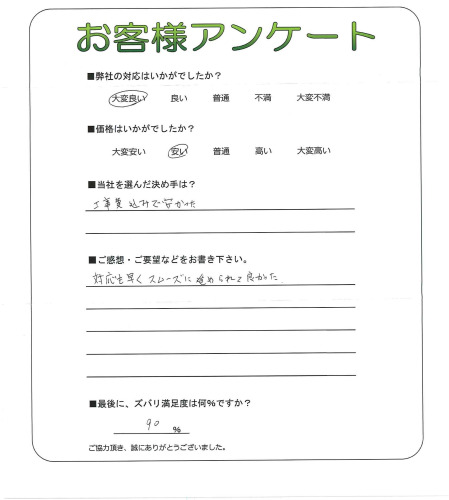 お客様アンケート
■弊社の対応はいかがでしたか？
大変良い 良い 普通 不満 大変不満
■価格はいかがでしたか？
大変安い 安い 普通 高い 大変高い
■当社を選んだ決め手は？
工事費込みで安かった
■ご感想・ご要望などをお書き下さい。
対応も早くスムーズに進められて良かった
■最後に、ズバリ満足度は何％ですか？
90 ％
ご協力頂き、誠にありがとうございました。